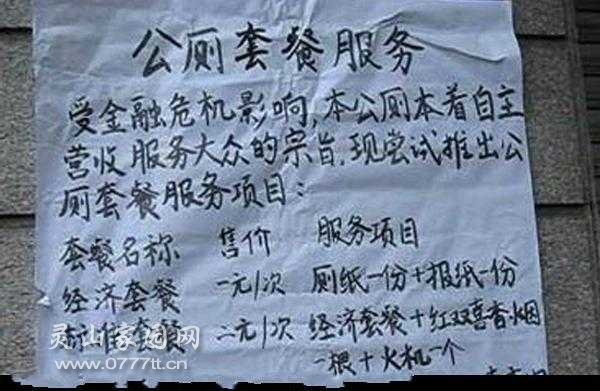 公厕套餐服务
受金融危机影响,本公厕本着自主
营收服务大众的宗旨.现尝试推出公
厕套餐服务项目:
套餐名称 售价 服务项目
经济套餐 一元/次 厕纸一份+报纸一份
标准套餐 二元/次 经济套餐+红双喜香烟
一根+火机一个
灵山家园网
www.0777tt.cn